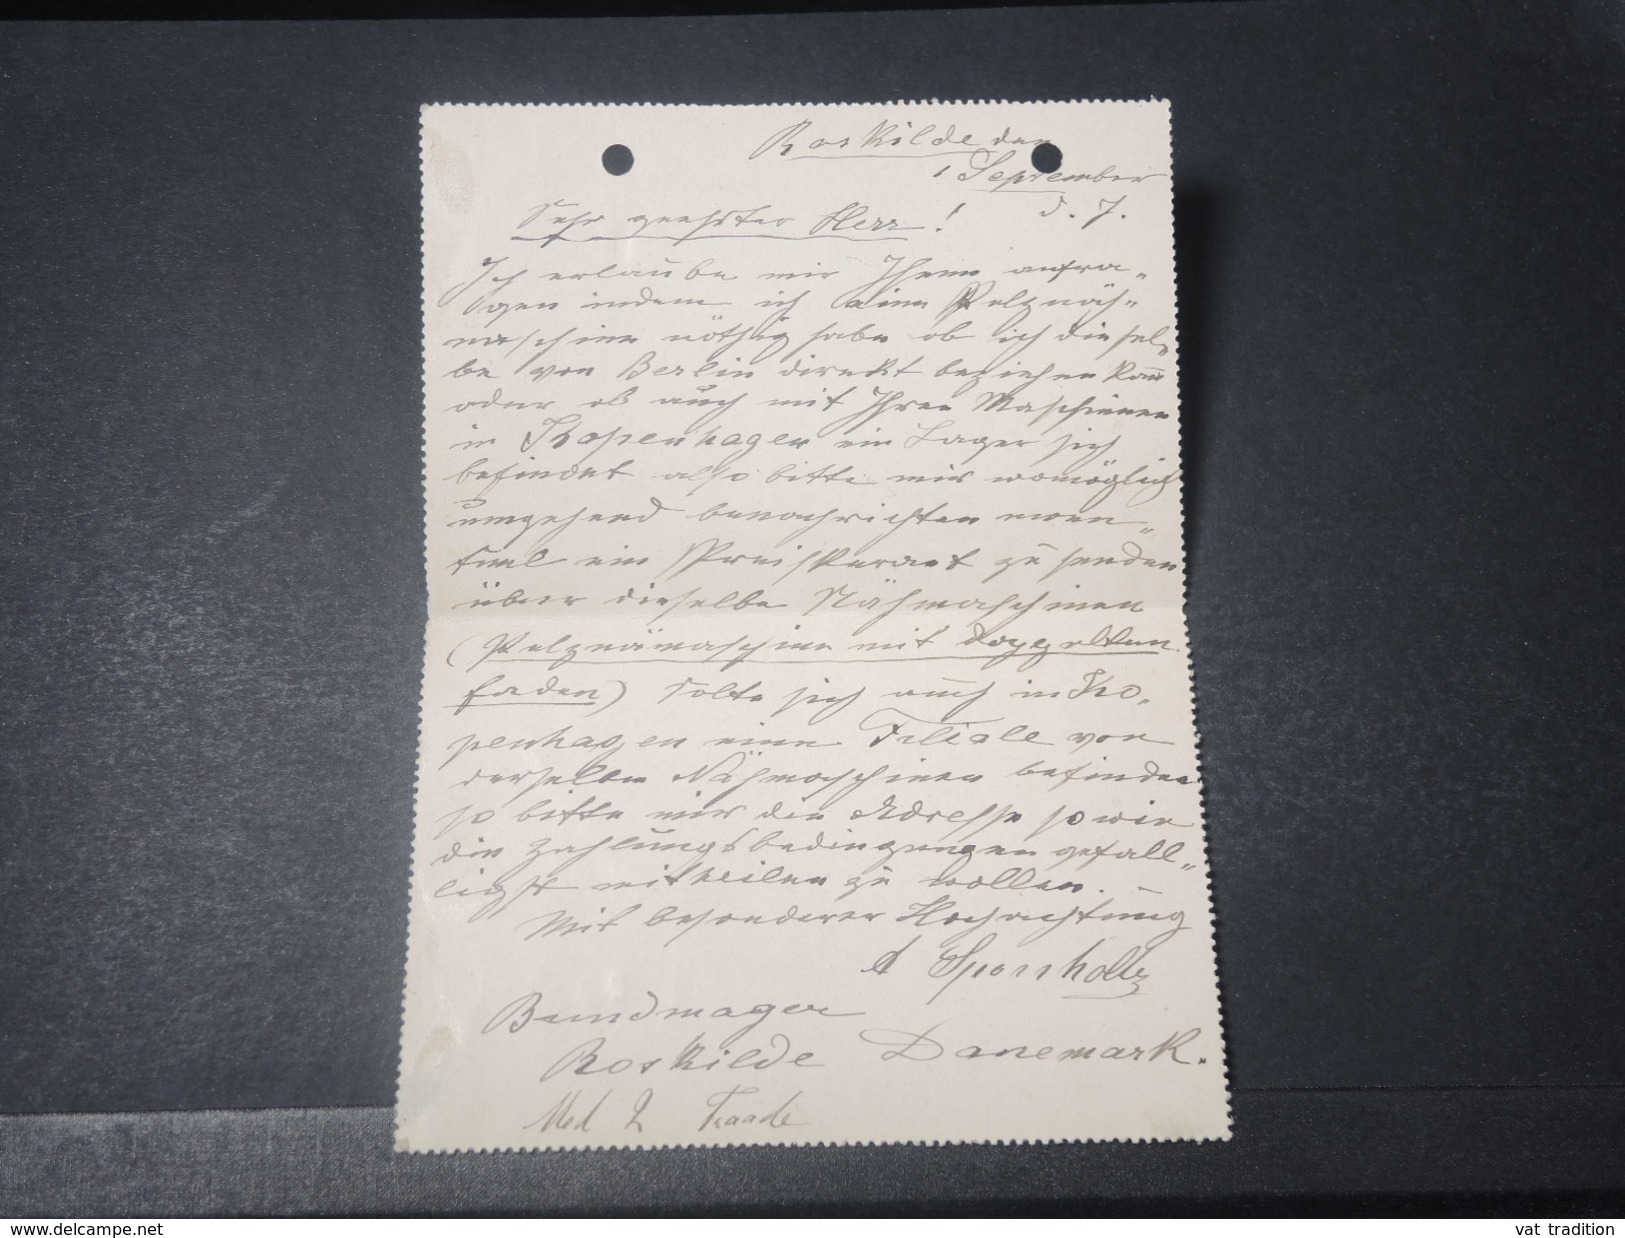 Roskilde den
1 September
d. J.
Sehr geehrter Herr!
Ich erlaube mir Ihnen anfra-
gen indem ich eine Pelznäh-
maschine nöthig habe ob ich diesel-
be von Berlin direkt beziehen kann
oder ob auch mit Ihren Maschinen
in Kopenhagen ein Lager sich
befindet also bitte mir womöglich
umgehend benachrichten even-
tuel ein Preiskurant zu senden
über dieselbe Nähmaschinen
(Pelznämaschine mit doppelten
faden) Solte sich auch in Ko-
penhagen eine Filiale von
derselben Nähmaschinen befinden
so bitte mir die Adresse so wie
die Zahlungsbedingungen gefäll-
ligst mitteilen zu wollen. —
Mit besonderer Hochachtung
A Sponholtz
Bundmager
Roskilde Danemark.
Med 2 Traade
www.delcampe.net
vat tradition